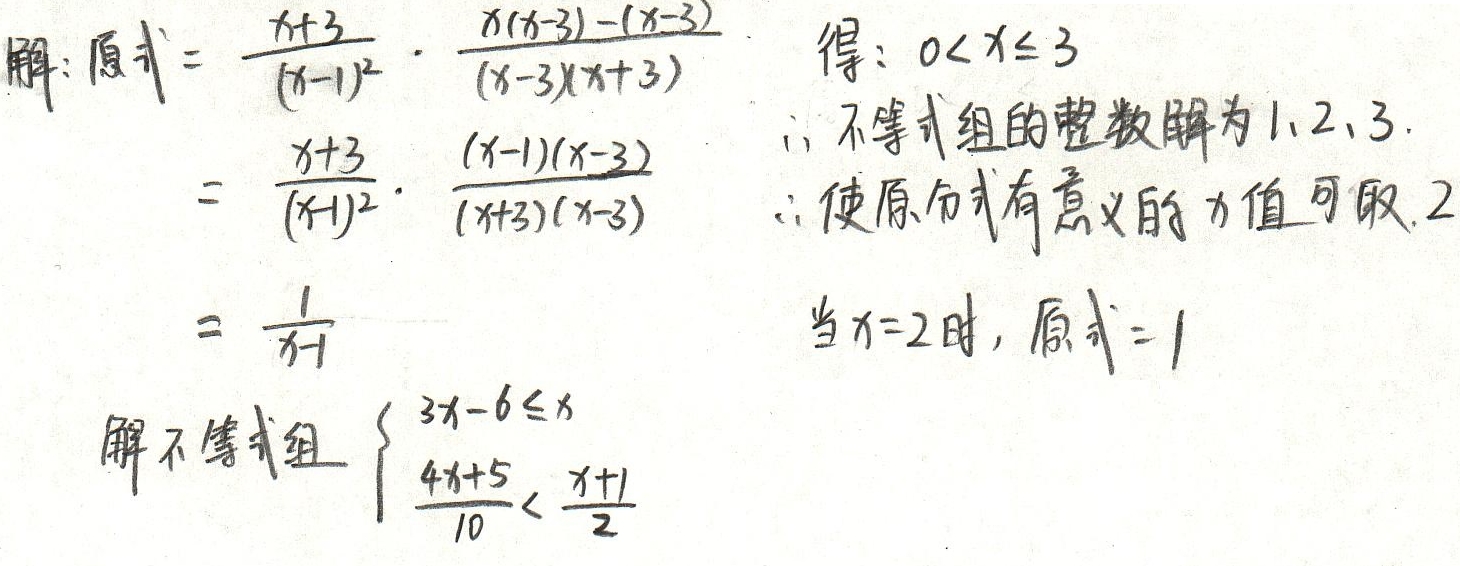 解:原式 = \frac{x+3}{(x-1)^2} · \frac{x(x-3)-(x-3)}{(x-3)(x+3)}
= \frac{x+3}{(x-1)^2} · \frac{(x-1)(x-3)}{(x+3)(x-3)}
= \frac{1}{x-1}
解不等式组 \begin{cases} 3x-6≤x \\ \frac{4x+5}{10} < \frac{x+1}{2} \end{cases}
得: 0<x≤3
∴ 不等式组的整数解为1、2、3.
∴ 使原分式有意义的x值可取.2
当x=2时,原式=1